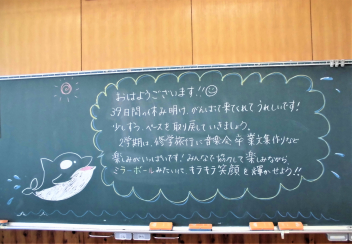 おはようございます!!
39日間の休み明け、がんばって来てくれてうれしいです!
少しずつ、ペースを取り戻していきましょう。
2学期は、修学旅行に音楽会、卒業文集作りなど
楽しみがいっぱいです!みんなで協力して楽しみながら
ミラーボールみたいに、キラキラ笑顔を輝かせよう!!